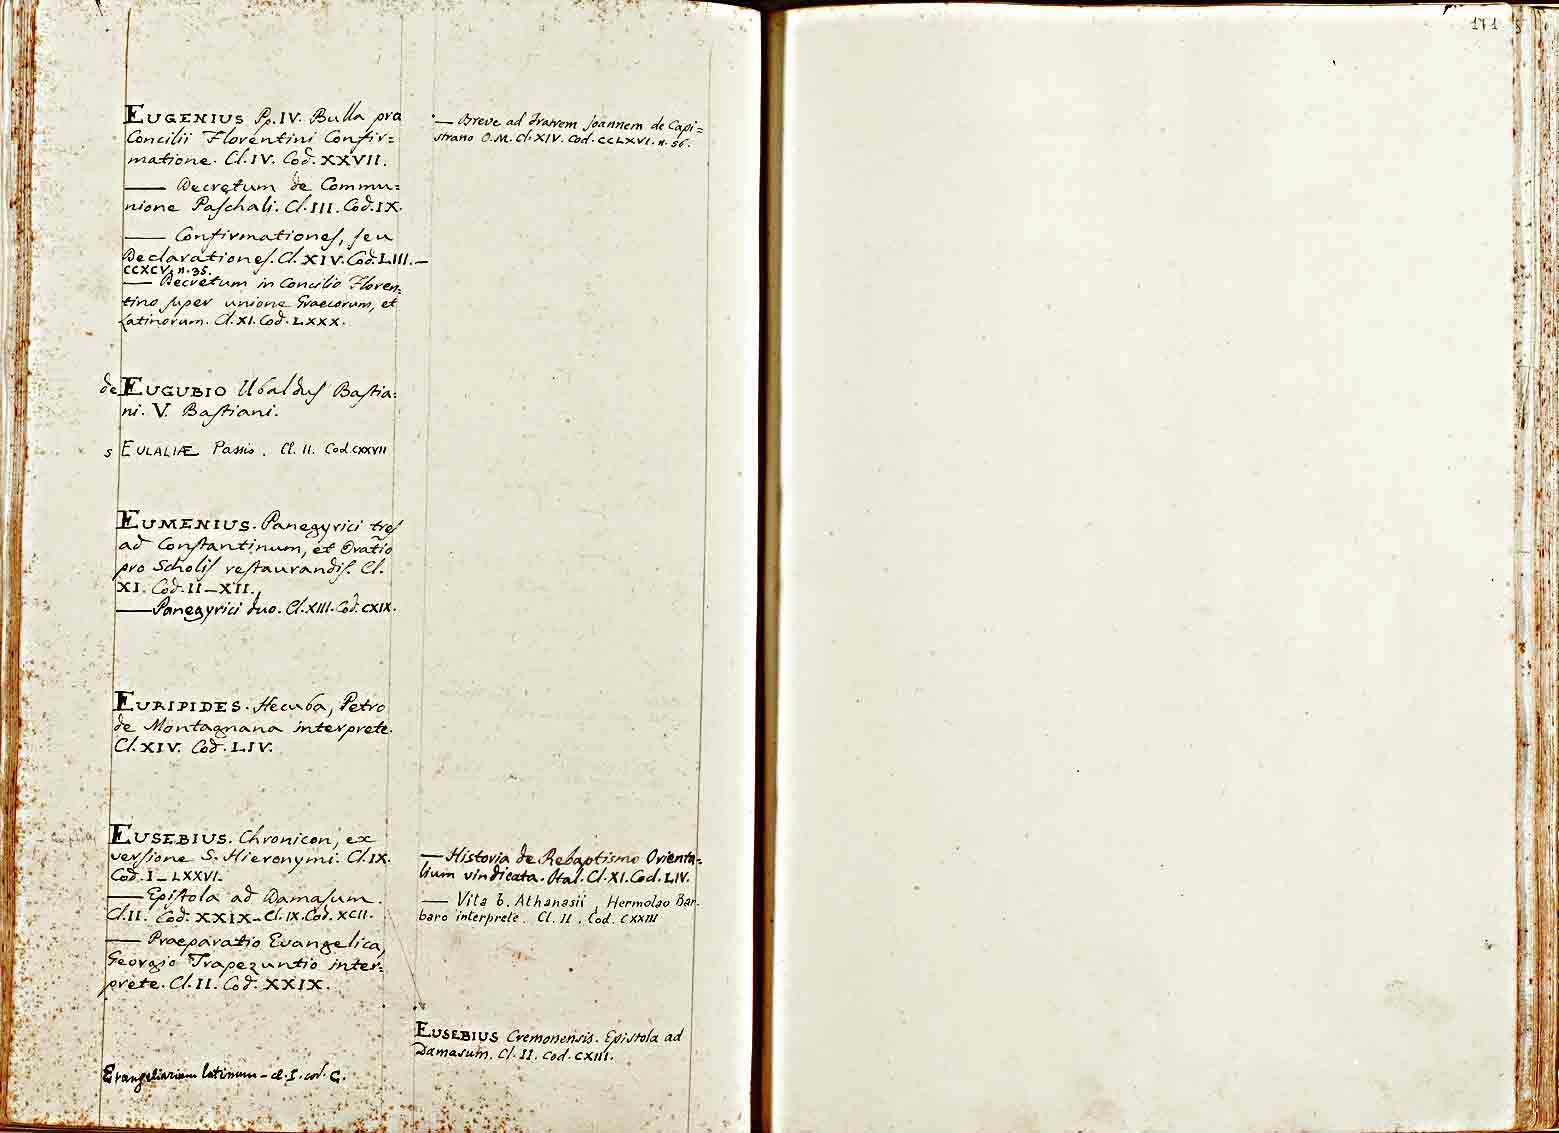 171
EUGENIUS Pp. IV. Bulla pro
Concilii Florentini Confir=
matione. Cl. IV. Cod. XXVII.
— Decretum de Commu=
nione Paſchali. Cl. III. Cod. IX.
— Confirmationeſ, ſeu
Declarationeſ. Cl. XIV. Cod. LIII. —
CCXCV. n. 35.
— Decretum in Concilio Floren=
tino ſuper unione Graecorum, et
Latinorum. Cl. XI. Cod. LXXX.
de EUGUBIO Ubalduſ Baſtia=
ni. V. Baſtiani.
S EULALIÆ Passio. Cl. II. Cod. CXXVII
EUMENIUS. Panegyrici treſ
ad Conſtantinum, et Oratio
pro Scholiſ reſtaurandiſ. Cl.
XI. Cod. II — XII.
— Panegyrici duo. Cl. XIII. Cod. CXIX.
EURIPIDES. Hecuba, Petro
de Montagnana interprete.
Cl. XIV. Cod. LIV.
EUSEBIUS. Chronicon, ex
verſione S. Hieronymi. Cl. IX.
Cod. I — LXXVI.
— Epiſtola ad Damaſum.
Cl. II. Cod. XXIX — Cl. IX. Cod. XCII.
— Praeparatio Evangelica,
Georgio Trapezuntio inter=
prete. Cl. II. Cod. XXIX.
Evangeliarium latinum — cl. I. cod. C.
— Breve ad Fratrem Joannem de Capi=
strano O. M. Cl. XIV. Cod. CCLXVI. n. 56.
— Historia de Rebaptismo Orienta=
lium vindicata. Ital. Cl. XI. Cod. LIV.
— Vita b. Athanasii, Hermolao Bar=
baro interprete. Cl. II. Cod. CXXIII
EUSEBIUS Cremonensis. Epistola ad
Damasum. Cl. II. Cod. CXIII.